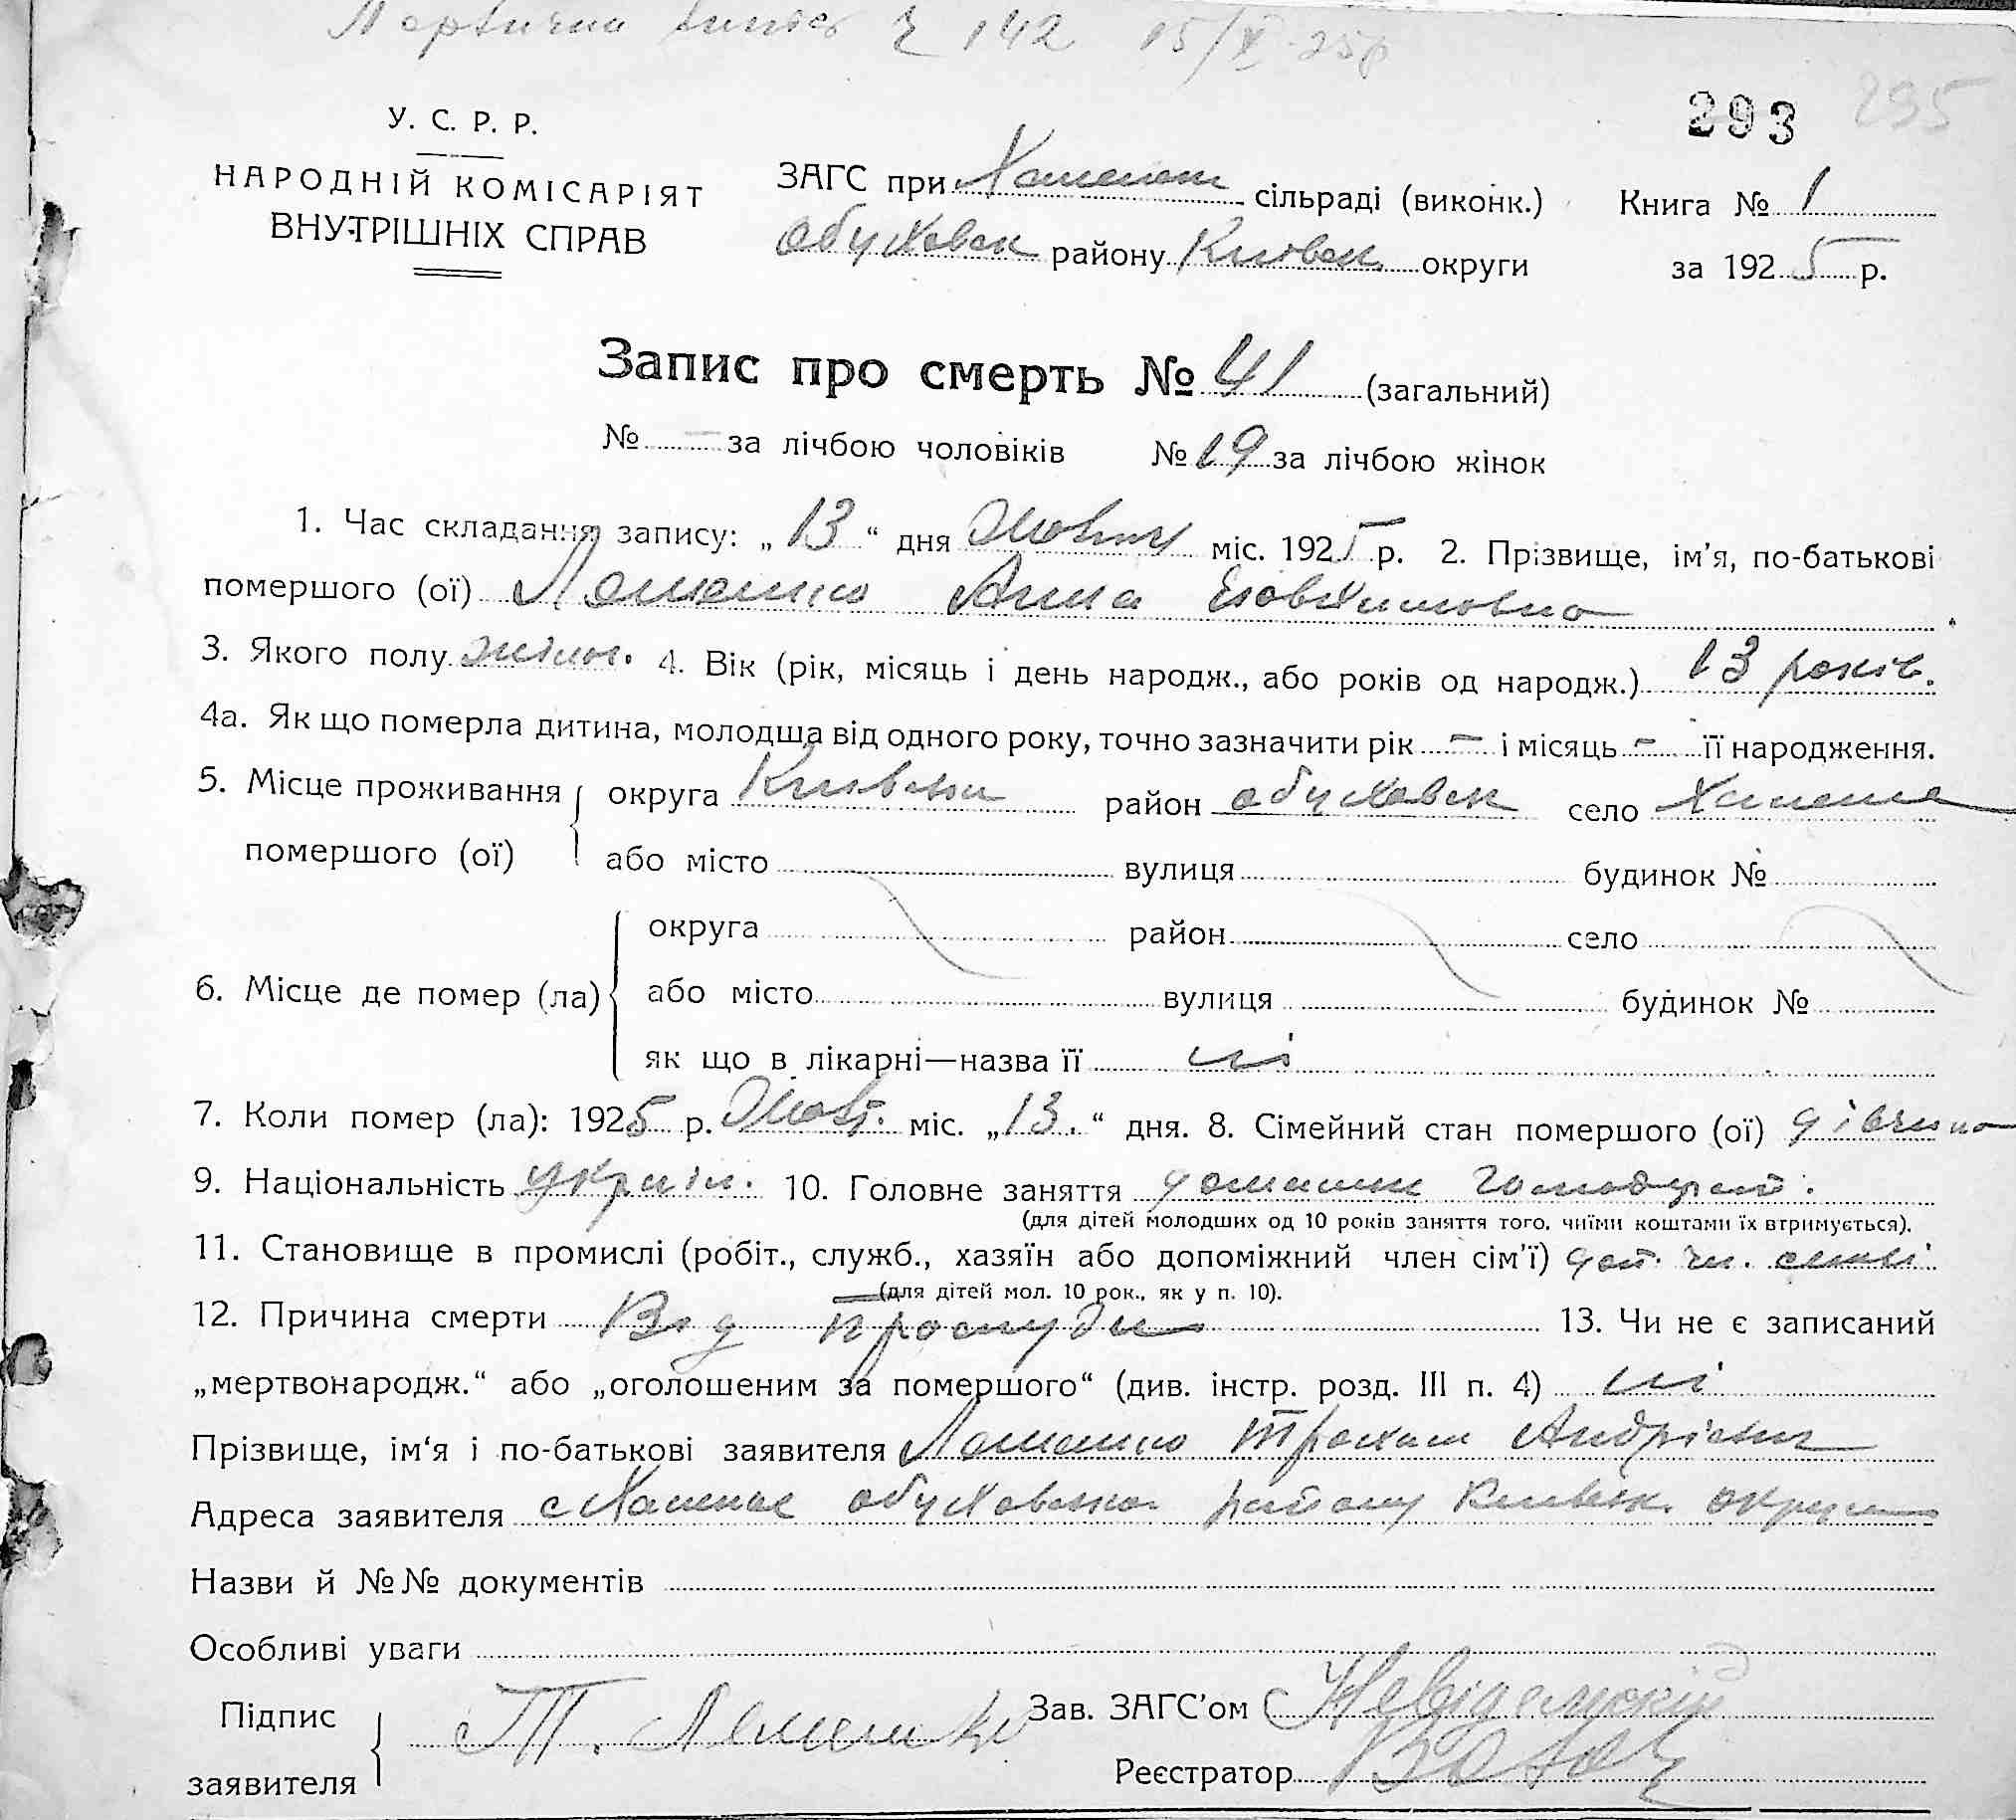 142 15/X 25р
293 295
У. С. Р. Р.
НАРОДНІЙ КОМІСАРІЯТ
ВНУТРІШНІХ СПРАВ
ЗАГС при сільраді (виконк.) Книга № 1
Обуховск району Київськ округи за 1925 р.
Запис про смерть № 41 (загальний)
№ — за лічбою чоловіків № 19 за лічбою жінок
1. Час складання запису: „13“ дня Жовтня міс. 1925 р. 2. Прізвище, ім’я, по-батькові
помершого (ої) Анна
3. Якого полу жіноч. 4. Вік (рік, місяць і день народж., або років од народж.) 13 років.
4а. Як що померла дитина, молодша від одного року, точно зазначити рік — і місяць — її народження.
5. Місце проживання округа район обуховск село
помершого (ої) або місто вулиця будинок №
округа район село
6. Місце де помер (ла) або місто вулиця будинок №
як що в лікарні—назва її ні
7. Коли помер (ла): 1925 р. Жовт. міс. „13.“ дня. 8. Сімейний стан помершого (ої) дівчина
9. Національність україн. 10. Головне заняття
(для дітей молодших од 10 років заняття того, чиїми коштами їх втримується).
11. Становище в промислі (робіт., служб., хазяїн або допоміжний член сім’ї) доп. чл. сімї
(для дітей мол. 10 рок., як у п. 10).
12. Причина смерти Від простуди 13. Чи не є записаний
„мертвонародж.“ або „оголошеним за помершого“ (див. інстр. розд. III п. 4) ні
Прізвище, ім‘я і по-батькові заявителя Андрієвич
Адреса заявителя району округи
Назви й №№ документів
Особливі уваги
Підпис
заявителя Т.
Зав. ЗАГС’ом
Реєстратор